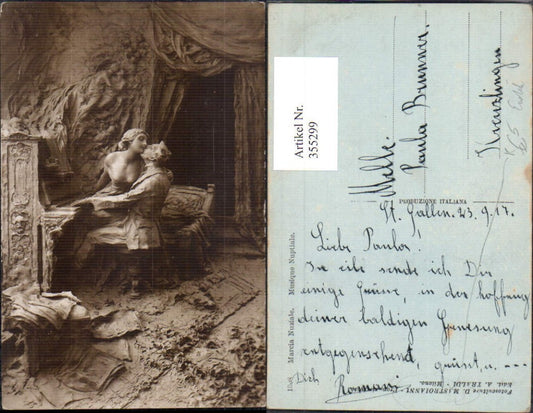 Artikel Nr.
355299
Mlle.
Paula Brunner.
Kreuzlingen
PRODUZIONE ITALIANA
St. Gallen. 23.9.17.
Liebe Paula.
In eile sende ich Dir
einige Grüsse, in der hoffnung
deiner baldigen Genesung
entgegensehend, grüsst u. ---
Dich Romani
Marcia Nuziale. Musique Nuptiale.
Fotoscultore D. MASTROIANNI
Edit. A. TRALDI - Milano.